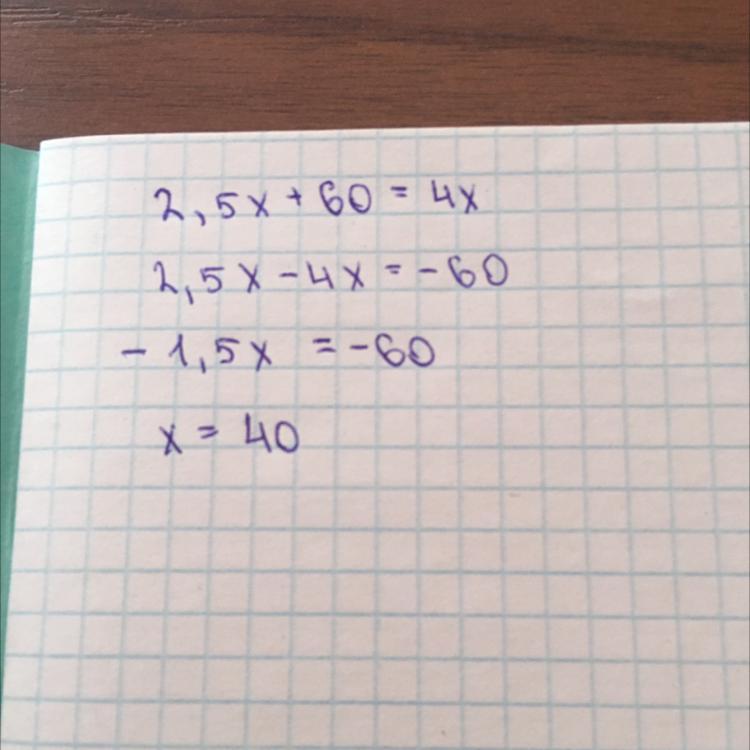 2,5x + 60 = 4x
2,5x - 4x = -60
- 1,5x = -60
x = 40